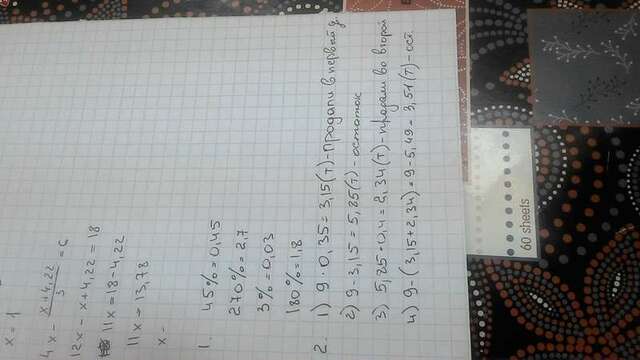 x = 1
4x - (x+4,22)/3 = 6
12x - x+4,22 = 18
11x = 18-4,22
11x = 13,78
x -
1. 45% = 0,45
270% = 2,7
3% = 0,03
180% = 1,8
2. 1) 9 · 0,35 = 3,15(т) - продали в первый д.
2) 9 - 3,15 = 5,85(т) - остаток
3) 5,85 · 0,4 = 2,34(т) - продали во второй
4) 9 - (3,15+2,34) = 9 - 5,49 = 3,51(т) - ост.
60 sheets